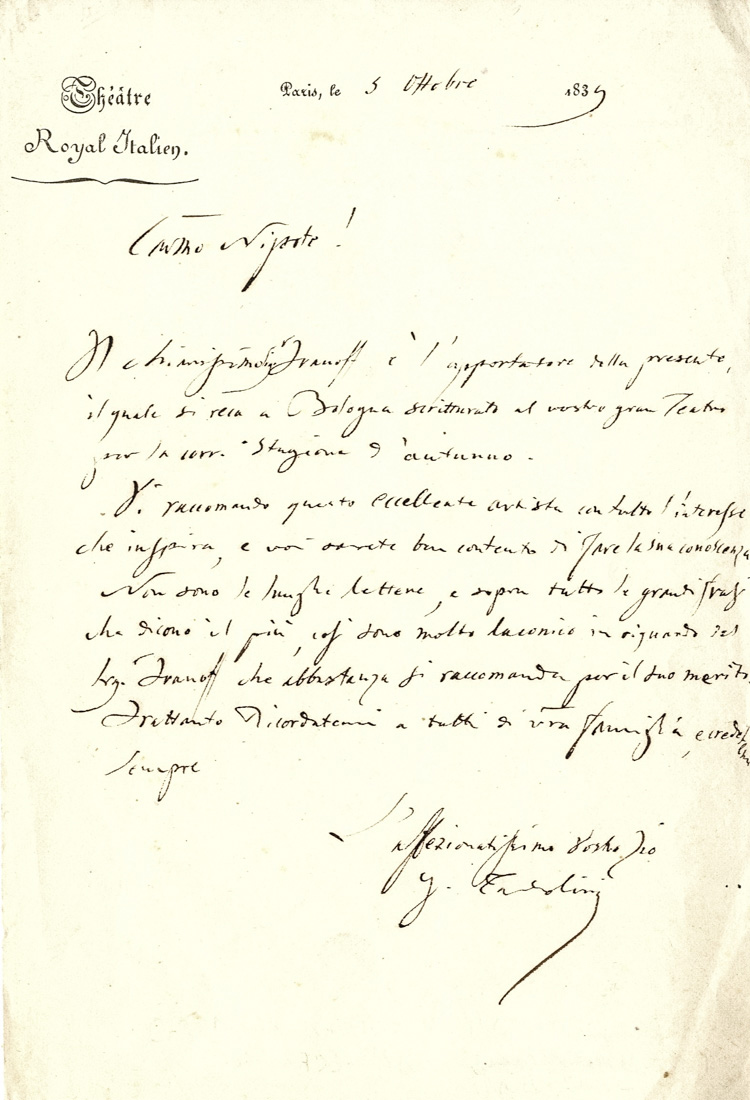 Théâtre
Royal Italien.
Paris, le 5 Ottobre 1839
Carmo Nipote!
Il chiarissimo Sigr Ivanoff è l'apportatore della presente,
il quale si reca a Bologna scritturato al vostro gran Teatro
per la corr. Stagione d'autunno.
Vi raccomando questo eccellente artista con tutto l'interesse
che inspira, e voi sarete ben contento di fare la sua conoscenza
Non sono le lunghe lettere, e sopra tutto le grandi frasi
che dicono il più, così sono molto laconico in riguardo del
Sigr Ivanoff che abbastanza si raccomanda per il suo merito.
Frattanto Ricordatemi a tutti di vra famiglia, e
Sempre
L'affezionatissimo Vostro Zio
G. Tadolini